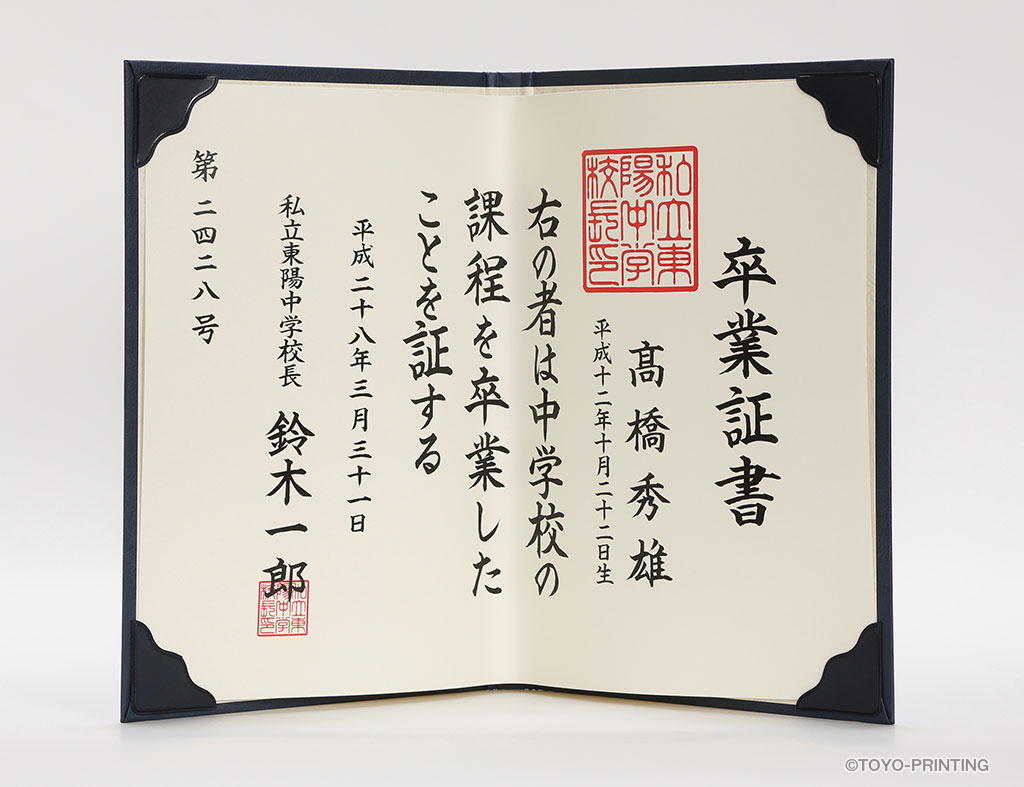 卒業証書
私立東
陽中学
校長印
髙橋秀雄
平成十二年十月二十二日生
右の者は中学校の
課程を卒業した
ことを証する
平成二十八年三月三十一日
私立東陽中学校長 鈴木一郎
私立東
陽中学
校長印
第二四二八号
©TOYO-PRINTING